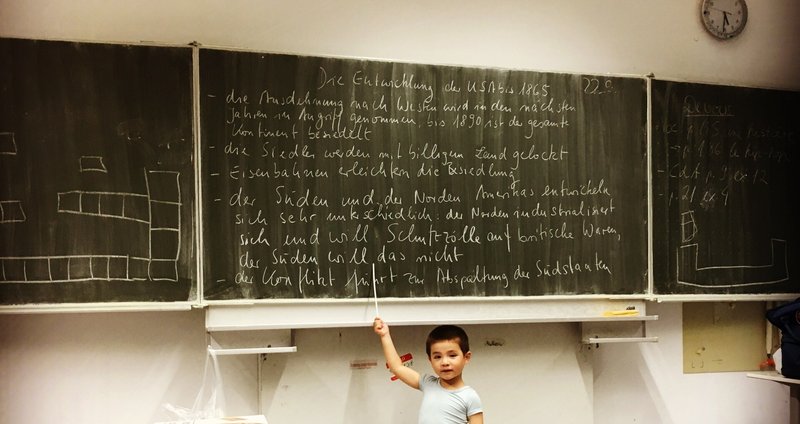 Die Entwicklung der USA bis 1865
22.9.
- die Ausdehnung nach Westen wird in den nächsten
Jahren in Angriff genommen, bis 1890 ist der gesamte
Kontinent besiedelt
- die Siedler werden mit billigem Land gelockt
- Eisenbahnen erleichtern die Besiedlung
- der Süden und der Norden Amerikas entwickeln
sich sehr unterschiedlich: der Norden industrialisiert
sich und will Schutzzölle auf britische Waren,
der Süden will das nicht
- der Konflikt führt zur Abspaltung der Südstaaten
Devoirs
- CdA p. 9 ex 12
- p. 21 ex 4